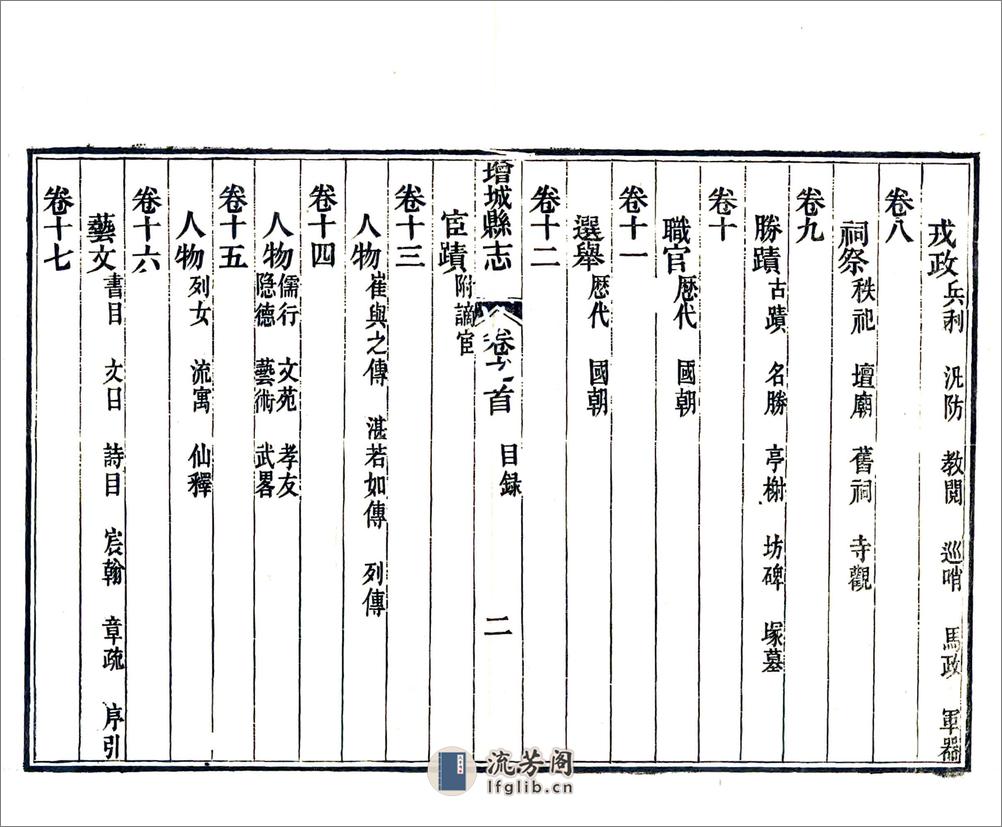 戎政兵利 汛防 教閱 巡哨 馬政 軍器
卷八
祠祭秩祀 壇廟 舊祠 寺觀
卷九
勝蹟古蹟 名勝 亭榭 坊碑 塚墓
卷十
職官歷代 國朝
卷十一
選舉歷代 國朝
卷十二
增城縣志 卷之首 目録 二
宦蹟附謫宦
卷十三
人物崔與之傳 湛若如傳 列傳
卷十四
人物儒行 文苑 孝友
隐德 藝術 武畧
卷十五
人物列女 流寓 仙釋
卷十六
藝文書目 文目 詩目 宸翰 章疏 序引
卷十七
流芳阁
lfglib.cn